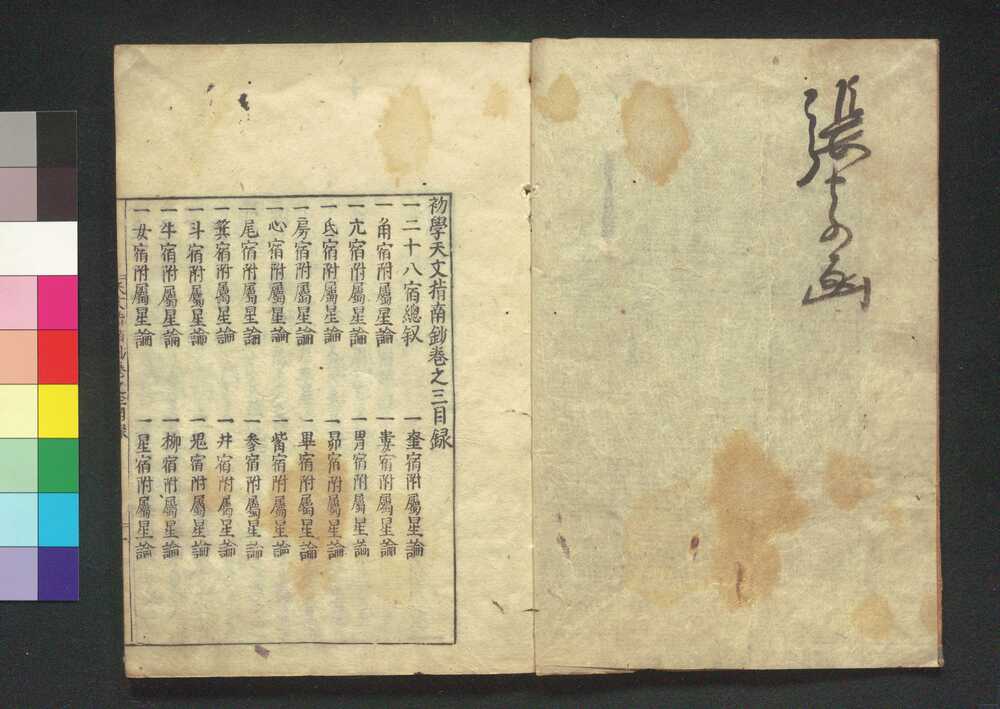 初學天文指南鈔巻之三目録
一二十八宿總叙
一角宿附屬星論
一亢宿附屬星論
一氐宿附屬星論
一房宿附屬星論
一心宿附屬星論
一尾宿附屬星論
一箕宿附屬星論
一斗宿附屬星論
一牛宿附屬星論
一女宿附屬星論
一奎宿附屬星論
一婁宿附屬星論
一胃宿附屬星論
一昴宿附屬星論
一畢宿附屬星論
一觜宿附屬星論
一參宿附屬星論
一井宿附屬星論
一鬼宿附屬星論
一柳宿附屬星論
一星宿附屬星論